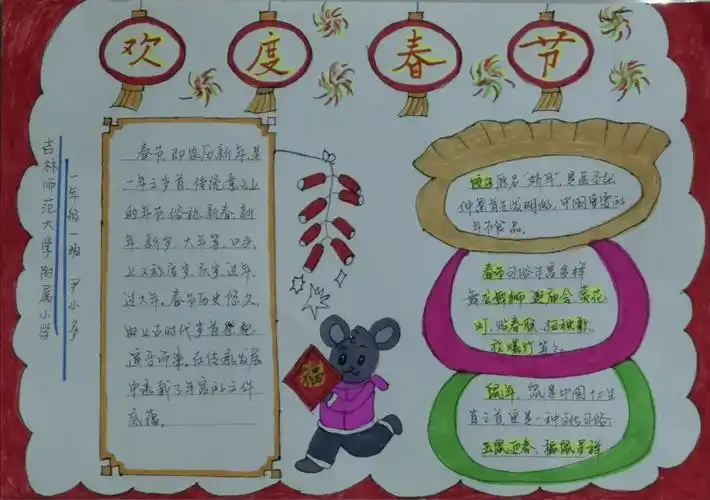 欢度春节
吉林师范大学附属小学
一年级一班
春节,即农历新年,是
一年之岁首,传统意义上
的年节。俗称新春、新
年、新岁、大年等,口头
上又称度岁、庆岁、过年、
过大年。春节历史悠久,
由上古时代岁首祭祀
演变而来。在传承发展
中承载了丰富的文化
底蕴。
福
饺子原名"娇耳",是医圣张
仲景首先发明的,中国
年节食品。
春节习俗丰富多样
舞龙舞狮、逛庙会、赏花
灯、贴春联、扭秧歌、
放爆竹等。
鼠年,鼠是中国十二生
肖之首,更是一种文化习俗
玉鼠迎春、福鼠呈祥